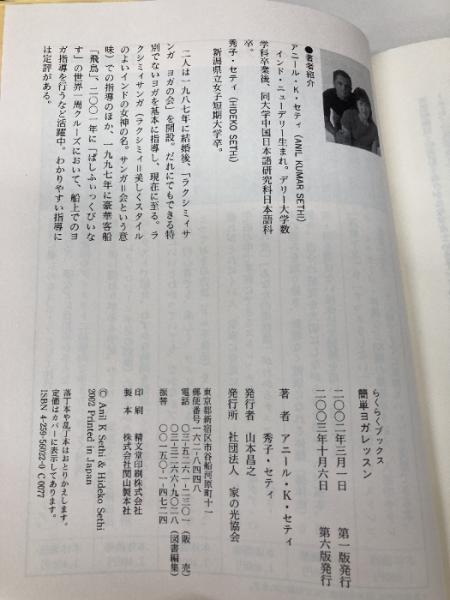 ●著者紹介
アニール・K・セティ(ANIL KUMAR SETHI)
インド・ニューデリー生まれ。デリー大学数
学科卒業後、同大学中国日本語研究科日本語科
卒。
秀子・セティ(HIDEKO SETHI)
新潟県立女子短期大学卒。
二人は一九八七年に結婚後、「ラクシミィサ
ンガ ヨガの会」を開設。だれにでもできる特
別でないヨガを基本に指導し、現在に至る。ラ
クシミィサンガ(ラクシミィ=美しくスタイル
のよいインドの女神の名。サンガ=会という意
味)での指導のほか、一九九七年に豪華客船
「飛鳥」、二〇〇一年に「ぱしふぃっくびいな
す」の世界一周クルーズにおいて、船上でのヨ
ガ指導を行うなど活躍中。わかりやすい指導に
は定評がある。
らくらくブックス
簡単ヨガレッスン
二〇〇二年三月一日 第一版発行
二〇〇三年十月六日 第六版発行
著者 アニール・K・セティ
秀子・セティ
発行者 山本昌之
発行所 社団法人 家の光協会
東京都新宿区市谷船河原町十一
郵便番号 一六二-八四四八
電話 〇三-五二六一-二三〇一(販売)
〇三-三二六六-九〇二八(図書編集)
振替 〇〇一五〇-一-四七二四
印刷 精文堂印刷株式会社
製本 株式会社関山製本社
© Anil K Sethi & Hideko Sethi
2002 Printed in Japan
落丁本や乱丁本はおとりかえします。
定価はカバーに表示してあります。
ISBN 4-259-56025-0 C0077